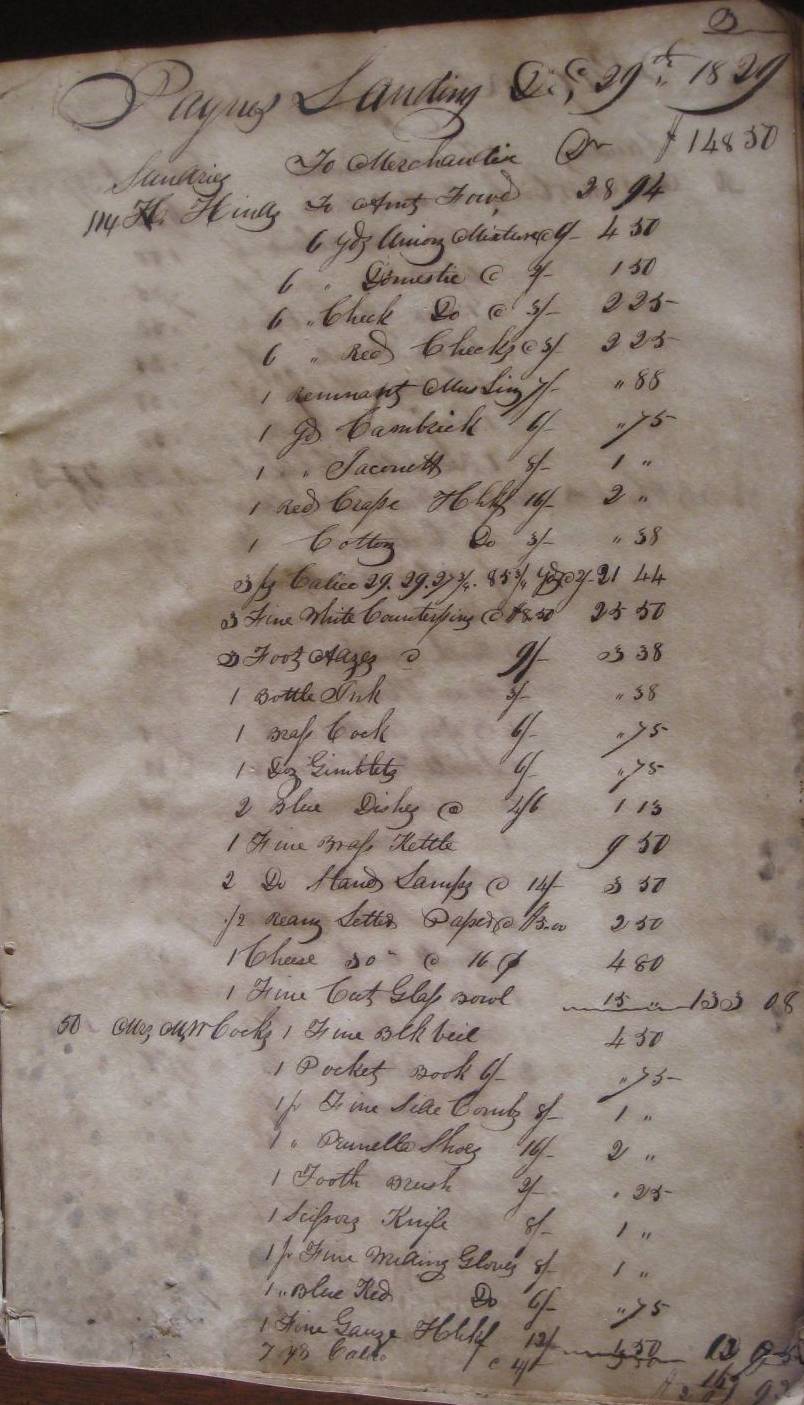 3
Paynes Landing Dec, 29th. 1829
Sundries To Merchandise Dr $148 50
114 H. Hinds To Amt Forwd 28 94
6 yds Union Mixture @ 6/- 4 50
6 " Domestic @ 2/- 1 50
6 " Check Do @ 3/- 2 25
6 " Red Checks @ 3/- 2 25
1 Remnant Muslin 7/- " 88
1 yd Cambrick 6/- " 75
1 " Jaconett 8/- 1 "
1 Red Crape Hhkf 16/- 2 "
1 Cotton Do 3/- " 38
3 ps Calico 29. 29. 27¾. 85¾ yds @ 2/- 21 44
3 Fine White Counterpins @ $8.50 25 50
3 Foot Adzes @ 9/- 3 38
1 Bottle Ink 3/- " 38
1 Brass Cock 6/- " 75
1 Doz Gimblets 6/- " 75
2 Blue Dishes @ 4/6 1 13
1 Fine Brass Kettle 9 50
2 Do Stand Lamps @ 14/- 3 50
1/2 Ream Letter Paper @ 2 50
1 Cheese 30 @ 16 ¢ 4 80
1 Fine Cut Glass Bowl 15 " 133 08
50 Mrs M W Cocks 1 Fine Blk Veil 4 50
1 Pocket Book 6/- " 75
1 pr Fine Side Combs 8/- 1 "
1 " Prunella Shoes 16/- 2 "
1 Tooth Brush 2/- " 25
1 Scissors Knife 8/- 1 "
1 pr Fine Gloves 8/- 1 "
1 " Blue Kid Do 6/- " 75
1 Fine Gauze Hhkf 12/- 1 50 12
7 yds Calico @ 4/- 3 50